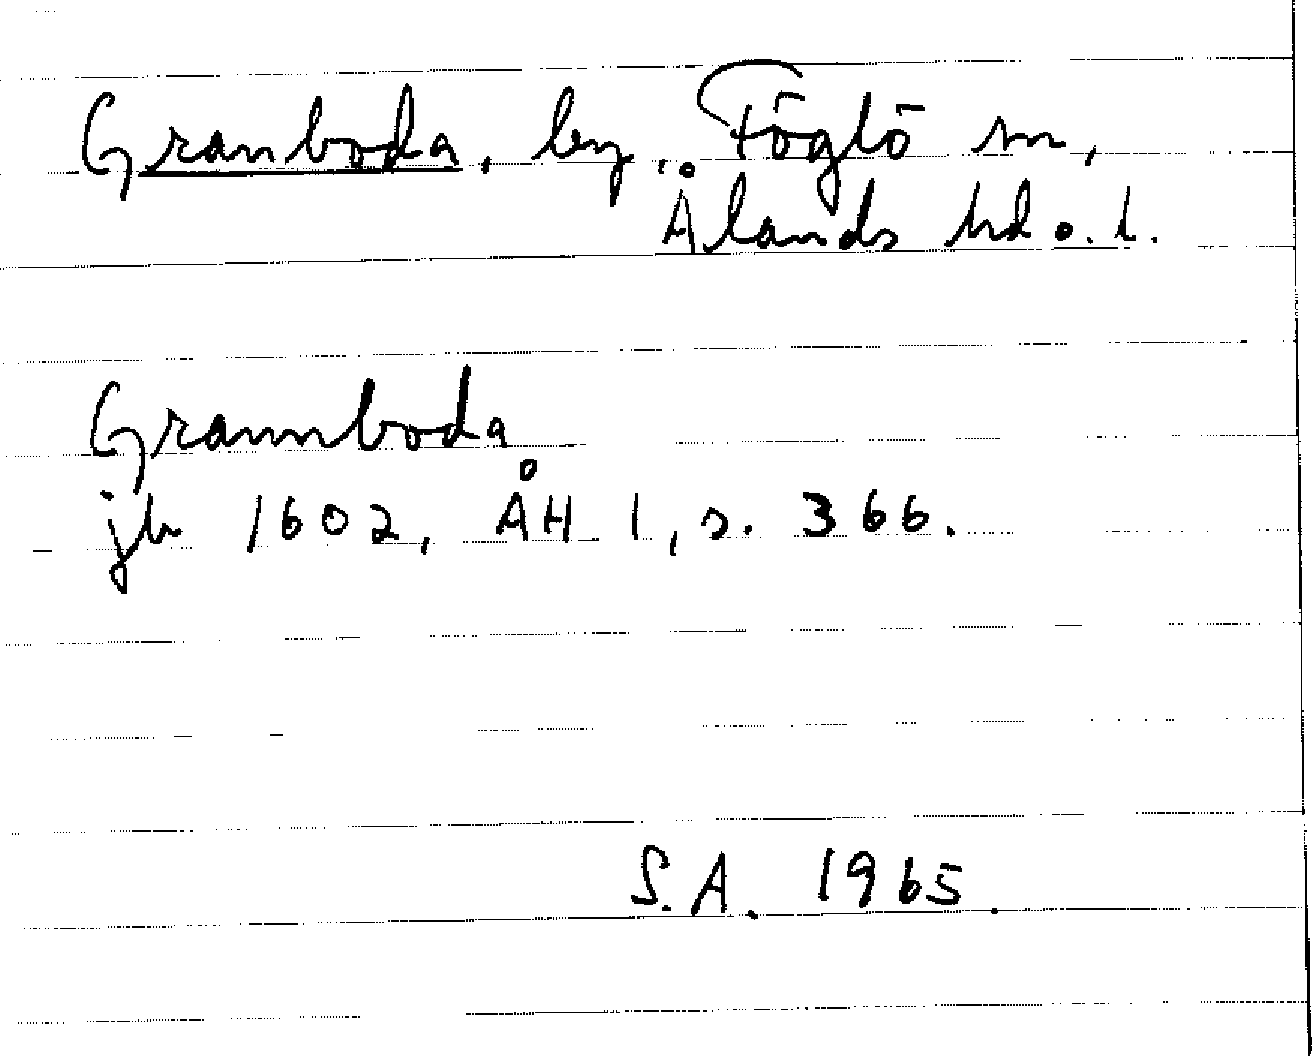 Granboda, by, Föglö sn,
Ålands hd o. l.
Grannboda
jb 1602, ÅH 1, s. 366.
S.A. 1965.